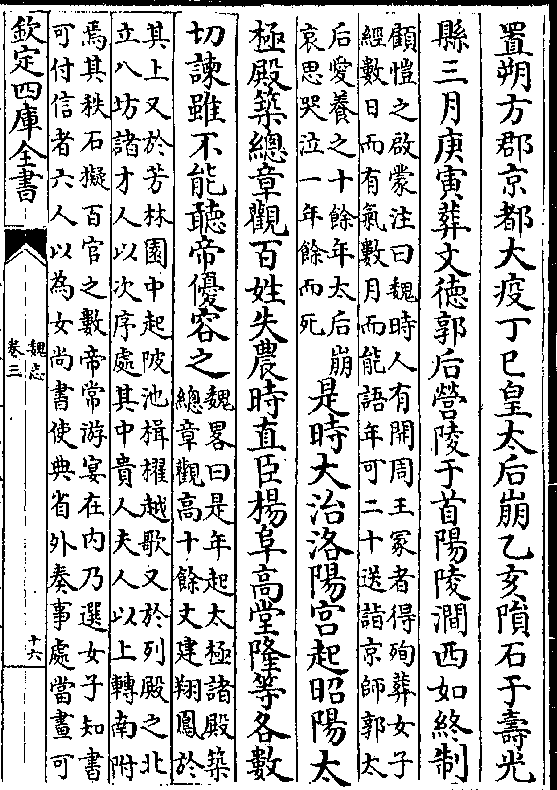 置朔方郡京都大疫丁巳皇太后崩乙亥隕石于壽光
縣三月庚寅葬文徳郭后營陵于首陽陵澗西如終制
顧愷之啟蒙注曰魏時人有開周王冢者得殉葬女子
經數日而有氣數月而能語年可二十送詣京師郭太
后愛養之十餘年太后崩
哀思哭泣一年餘而死
是時大治洛陽宫起昭陽太
極殿築總章觀百姓失農時直臣楊阜髙堂隆等各數
切諫雖不能聽帝優容之
魏畧曰是年起太極諸殿築
總章觀髙十餘丈建翔鳳於
其上又於芳林園中起陂池楫櫂越歌又於列殿之北
立八坊諸才人以次序處其中貴人夫人以上轉南附
焉其秩石擬百官之數帝常游宴在内乃選女子知書
可付信者六人以為女尚書使典省外奏事處當畫可
欽定四庫全書
魏志
卷三
十六